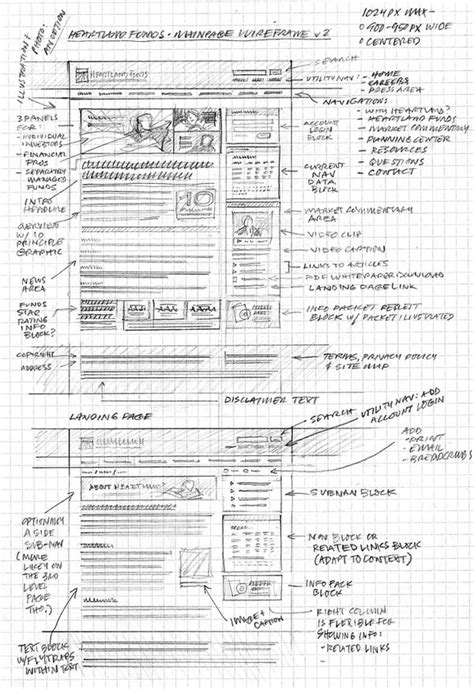 HEARTLAND FUNDS - MAINPAGE WIREFRAME v2
1024 PX MAX -
900-950 PX WIDE
CENTERED
ILLUSTRATION &
PHOTO
HEARTLAND FUNDS
SEARCH
UTILITY NAV: - HOME
- CAREERS
- PRESS AREA
NAVIGATION:
- WHY HEARTLAND?
- HEARTLAND FUNDS
- MARKET COMMENTARY
- PLANNING CENTER
- RESOURCES
- QUESTIONS
- CONTACT
3 PANELS
FOR:
- INDIVIDUAL
INVESTORS
- FINANCIAL
PROS
- SEPARATELY
MANAGED
FUNDS
INTRO
HEADLINE
OVERVIEW
W/ 10
PRINCIPLE
GRAPHIC
10
NEWS
AREA
FUNDS
STAR
RATING
INFO
BLOCK?
COPYRIGHT
ADDRESS
ACCOUNT
LOGIN
BLOCK
CURRENT
NAV
DATA
BLOCK
MARKET COMMENTARY
AREA
VIDEO CLIP
VIDEO CAPTION
LINKS TO ARTICLES
PDF WHITEPAPER DOWNLOAD
LANDING PAGE LINK
INFO PACKET REQUEST
BLOCK W/ PACKET ILLUSTRATED
TERMS, PRIVACY POLICY
& SITE MAP
DISCLAIMER TEXT
LANDING PAGE
SEARCH
UTILITY NAV: ADD
ACCOUNT LOGIN
ADD
- PRINT
- EMAIL
- BREADCRUMBS
ABOUT HEARTLAND?
SUBNAV BLOCK
OPTIONALLY
A SIDE
SUB-NAV
(MORE
LIKELY ON
THE 3RD
LEVEL
PAGE
THO.)
NAV BLOCK OR
RELATED LINKS BLOCK
(ADAPT TO CONTEXT)
INFO PACK
BLOCK
IMAGE &
CAPTION
RIGHT COLUMN
IS FLEXIBLE FOR
SHOWING INFO:
- RELATED LINKS
TEXT BLOCK
W/ FLYTRAPS
WITHIN TEXT